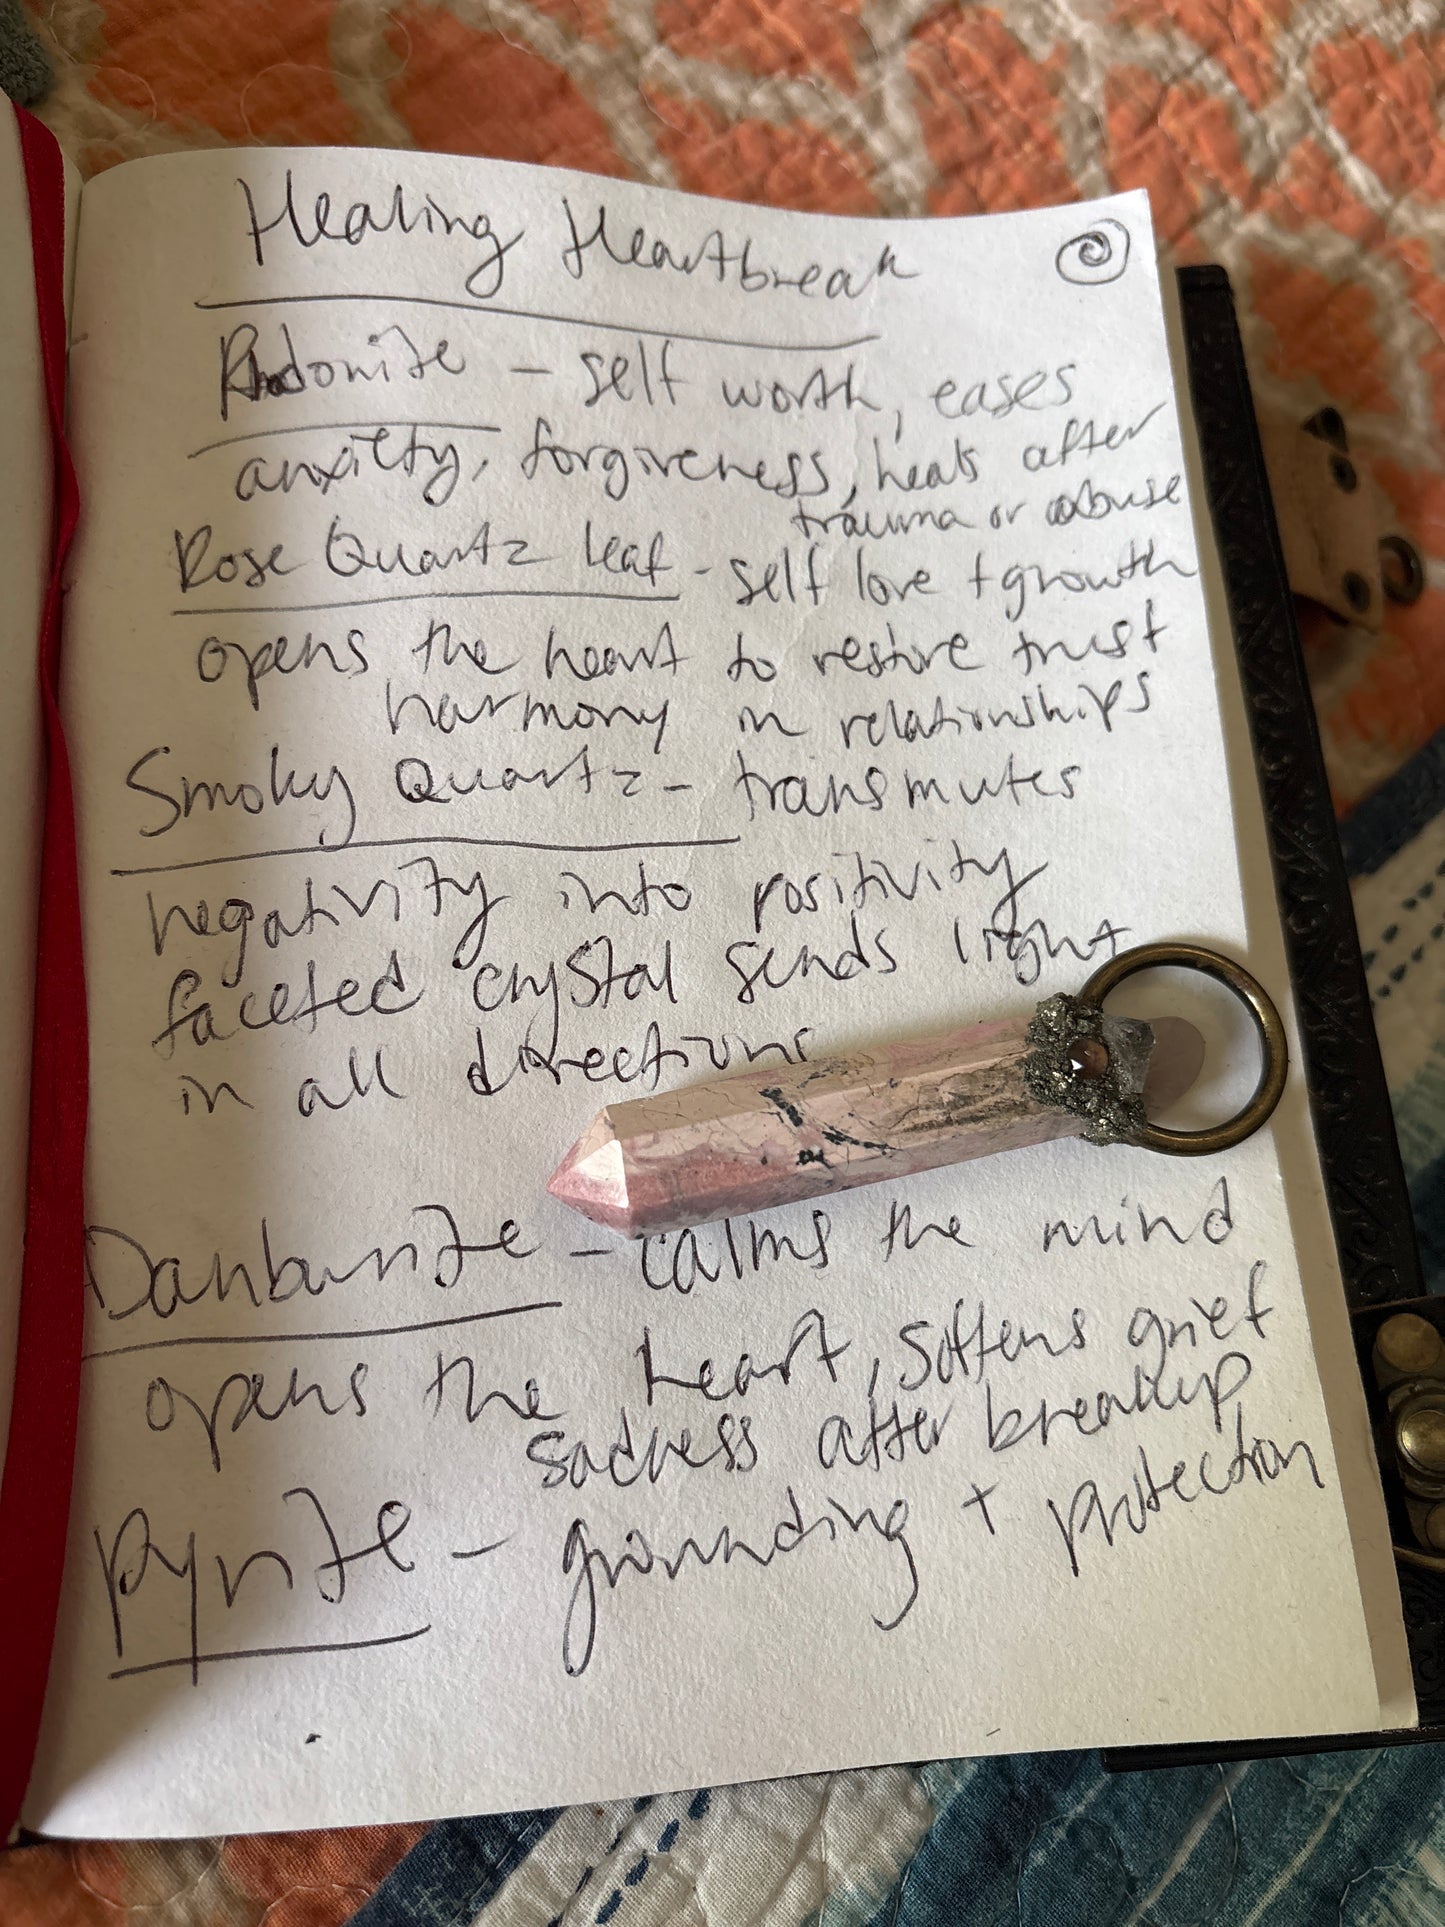 Healing Heartbreak
Rhodonite - self worth, eases
anxiety, forgiveness, heals after
trauma or abuse
Rose Quartz leaf - self love + growth
opens the heart to restore trust
harmony in relationships
Smoky Quartz - transmutes
negativity into positivity
faceted crystal sends light
in all directions
Danburite - calms the mind
opens the heart, softens grief
sadness after breakup
Pyrite - grounding + protection